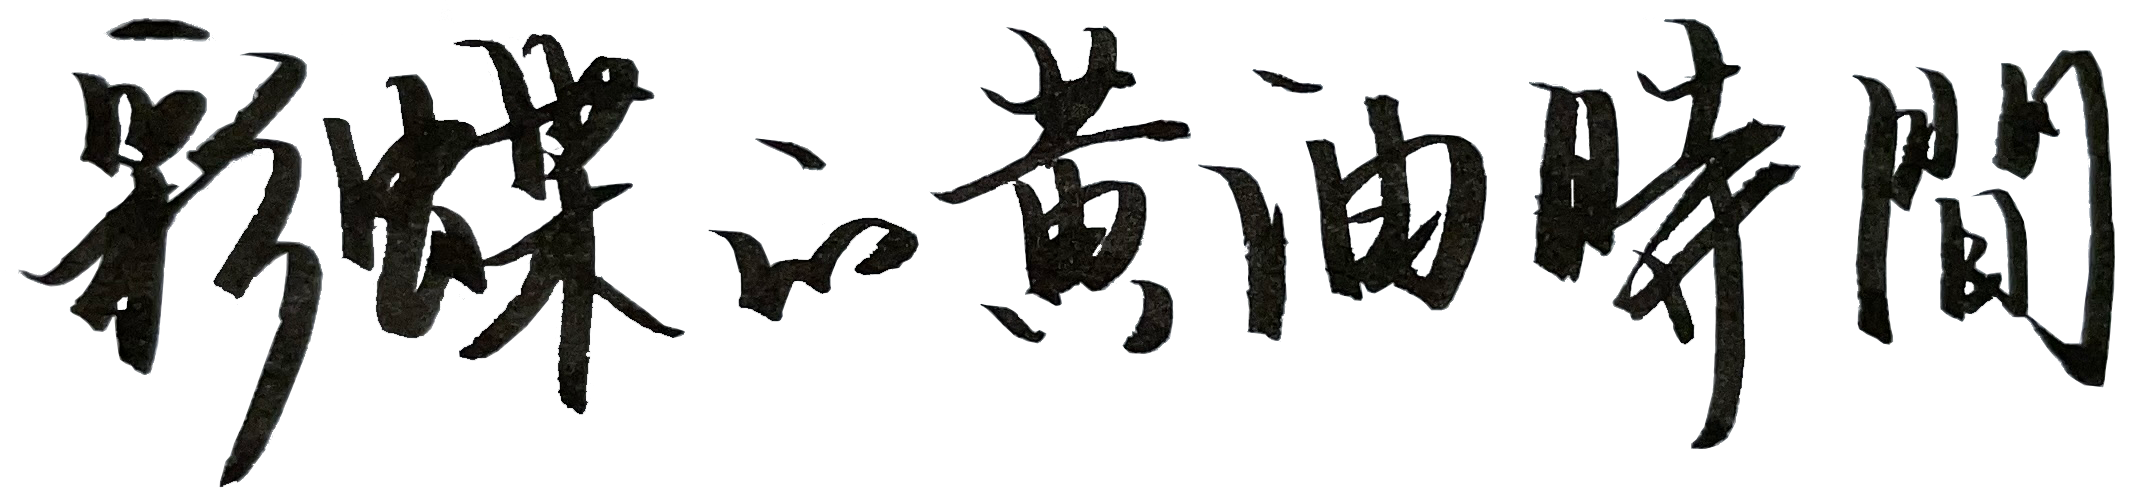 彩蝶的黃油時間